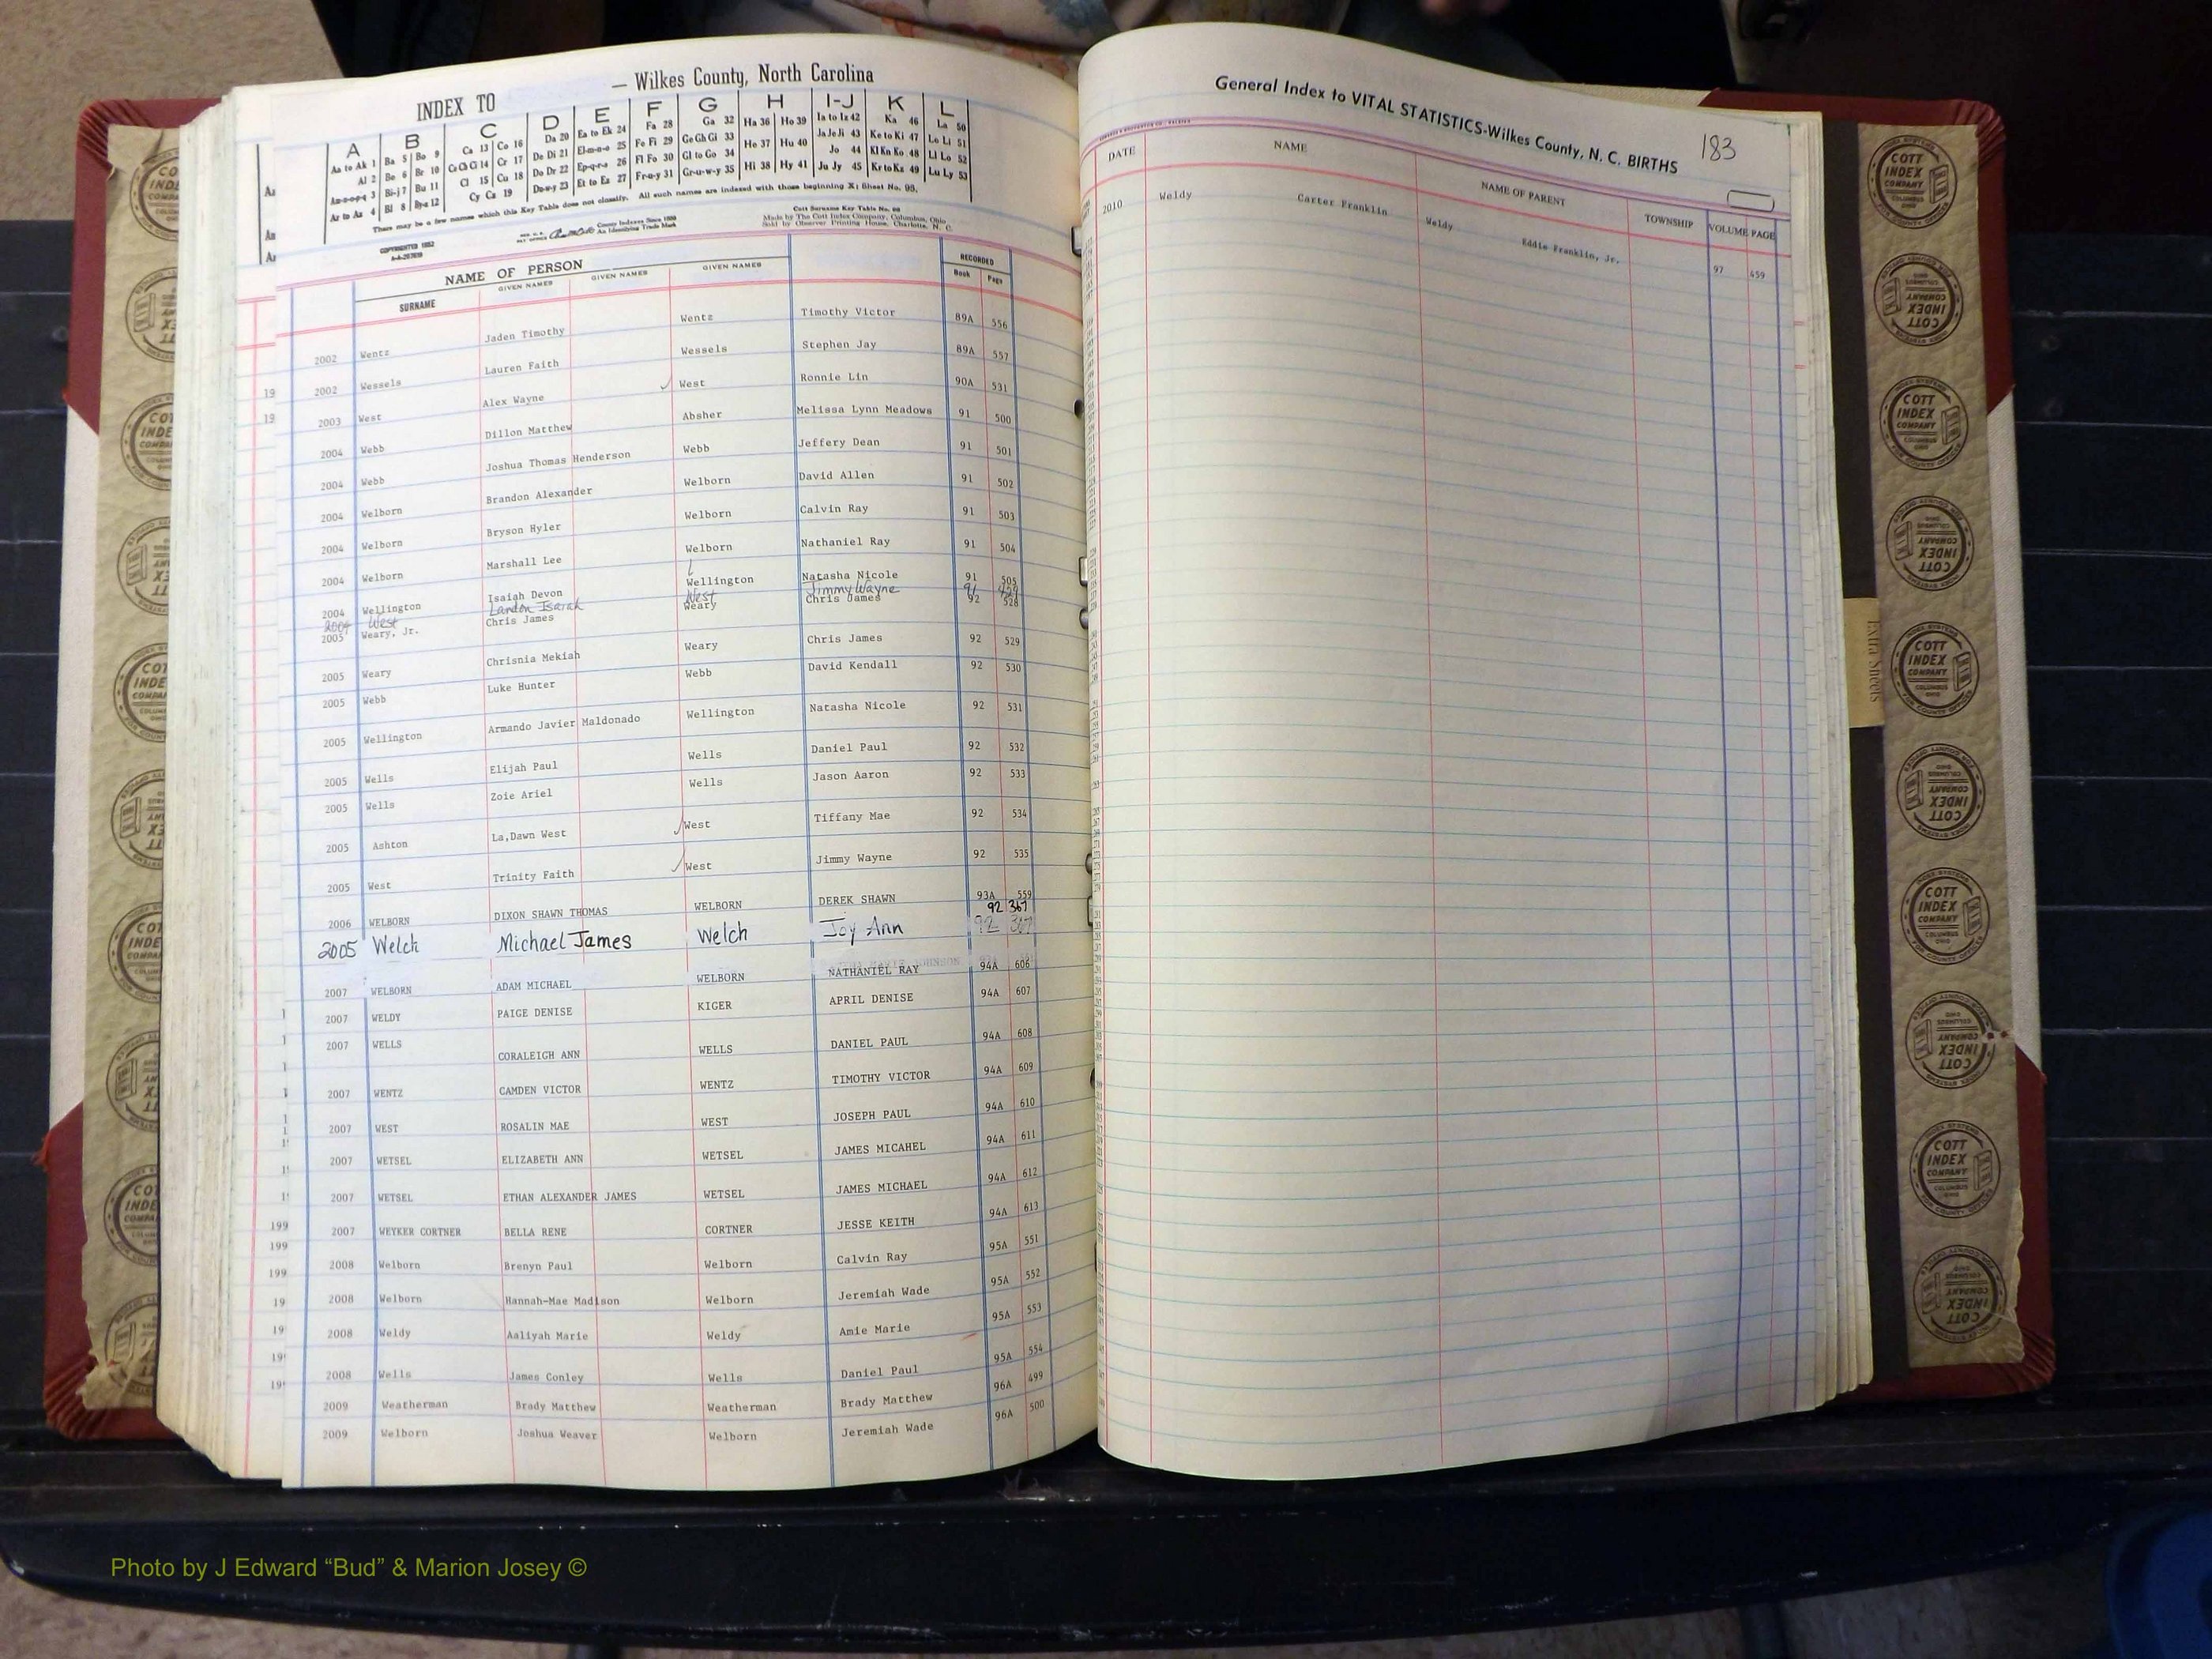 INDEX TO — Wilkes County, North Carolina
A B C D E F G H I-J K L
Aa to Ak 1 Ba 5 Bo 9 Ca 13 Co 16 Da 20 Ea to Ek 24 Fa 28 Ga 32 Ha 36 Ho 39 Ia to Iz 42 Ka 46 La 50
Al 2 Be 6 Br 10 Ce Ch Ci 14 Cr 17 De Di 21 El-m-n-o 25 Fe Fi 29 Ge Gh Gi 33 He 37 Hu 40 Ja Je Ji 43 Ke to Ki 47 Le Li 51
Am-n-o-p-q 3 Bi-j 7 Bu 11 Cl 15 Cu 18 Do Dr 22 Ep-q-r-s 26 Fl Fo 30 Gl to Go 34 Hi 38 Hy 41 Jo 44 Kl Kn Ko 48 Ll Lo 52
Ar to Az 4 Bl 8 By-a 12 Cy Cz 19 Du-w-y 23 Et to Ez 27 Fr-u-y 31 Gr-u-w-y 35 Ju Jy 45 Kr to Kz 49 Lu Ly 53
There may be a few names which this Key Table does not classify. All such names are indexed with those beginning X: Sheet No. 98.
COPYRIGHTED 1952
County Indexes Since 1888
An Identifying Trade Mark
Cott Surname Key Table No. 98
Made by The Cott Index Company, Columbus, Ohio
Sold by Observer Printing House, Charlotte, N. C.
NAME OF PERSON RECORDED
SURNAME GIVEN NAMES GIVEN NAMES GIVEN NAMES Book Page
2002 Wentz Jaden Timothy Wentz Timothy Victor 89A 556
2002 Wessels Lauren Faith Wessels Stephen Jay 89A 557
2003 West Alex Wayne ✓ West Ronnie Lin 90A 531
2004 Webb Dillon Matthew Absher Melissa Lynn Meadows 91 500
2004 Webb Joshua Thomas Henderson Webb Jeffery Dean 91 501
2004 Welborn Brandon Alexander Welborn David Allen 91 502
2004 Welborn Bryson Hyler Welborn Calvin Ray 91 503
2004 Welborn Marshall Lee Welborn Nathaniel Ray 91 504
2004 Wellington Isaiah Devon Wellington Natasha Nicole 91 505
2004 West Landon Isaiah West Jimmy Wayne 91
2005 Weary, Jr. Chris James Weary Chris James 92 528
2005 Weary Chrisnia Mekiah Weary Chris James 92 529
2005 Webb Luke Hunter Webb David Kendall 92 530
2005 Wellington Armando Javier Maldonado Wellington Natasha Nicole 92 531
2005 Wells Elijah Paul Wells Daniel Paul 92 532
2005 Wells Zoie Ariel Wells Jason Aaron 92 533
2005 Ashton La,Dawn West ✓ West Tiffany Mae 92 534
2005 West Trinity Faith ✓ West Jimmy Wayne 92 535
2006 WELBORN DIXON SHAWN THOMAS WELBORN DEREK SHAWN 93A 559
92 367
2005 Welch Michael James Welch Joy Ann 92 367
2007 WELBORN ADAM MICHAEL WELBORN NATHANIEL RAY 94A 606
2007 WELDY PAIGE DENISE KIGER APRIL DENISE 94A 607
2007 WELLS CORALEIGH ANN WELLS DANIEL PAUL 94A 608
2007 WENTZ CAMDEN VICTOR WENTZ TIMOTHY VICTOR 94A 609
2007 WEST ROSALIN MAE WEST JOSEPH PAUL 94A 610
2007 WETSEL ELIZABETH ANN WETSEL JAMES MICAHEL 94A 611
2007 WETSEL ETHAN ALEXANDER JAMES WETSEL JAMES MICHAEL 94A 612
2007 WEYKER CORTNER BELLA RENE CORTNER JESSE KEITH 94A 613
2008 Welborn Brenyn Paul Welborn Calvin Ray 95A 551
2008 Welborn Hannah-Mae Madison Welborn Jeremiah Wade 95A 552
2008 Weldy Aaliyah Marie Weldy Amie Marie 95A 553
2008 Wells James Conley Wells Daniel Paul 95A 554
2009 Weatherman Brody Matthew Weatherman Brady Matthew 96A 499
2009 Welborn Joshua Weaver Welborn Jeremiah Wade 96A 500
General Index to VITAL STATISTICS-Wilkes County, N. C. BIRTHS 183
DATE NAME NAME OF PARENT TOWNSHIP VOLUME PAGE
2010 Weldy Carter Franklin Weldy Eddie Franklin, Jr. 97 459
Extra Sheets
COTT INDEX COMPANY COLUMBUS OHIO
INDEX SYSTEMS FOR COUNTY OFFICES
Photo by J Edward “Bud” & Marion Josey ©